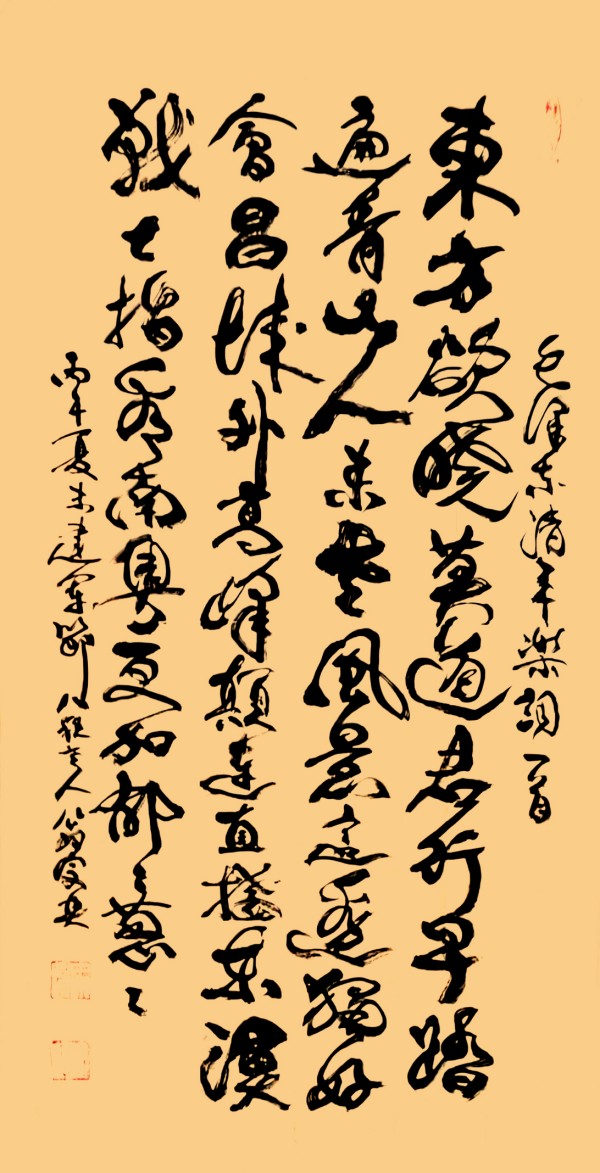 毛澤东清平樂詞一首
東方欲曉莫道君行早踏
遍青山人未老風景這邊獨好
會昌城外高峰顛連直接东溟
戰士指看南粤更加郁〻葱〻
丙午夏末建军節八秩老人